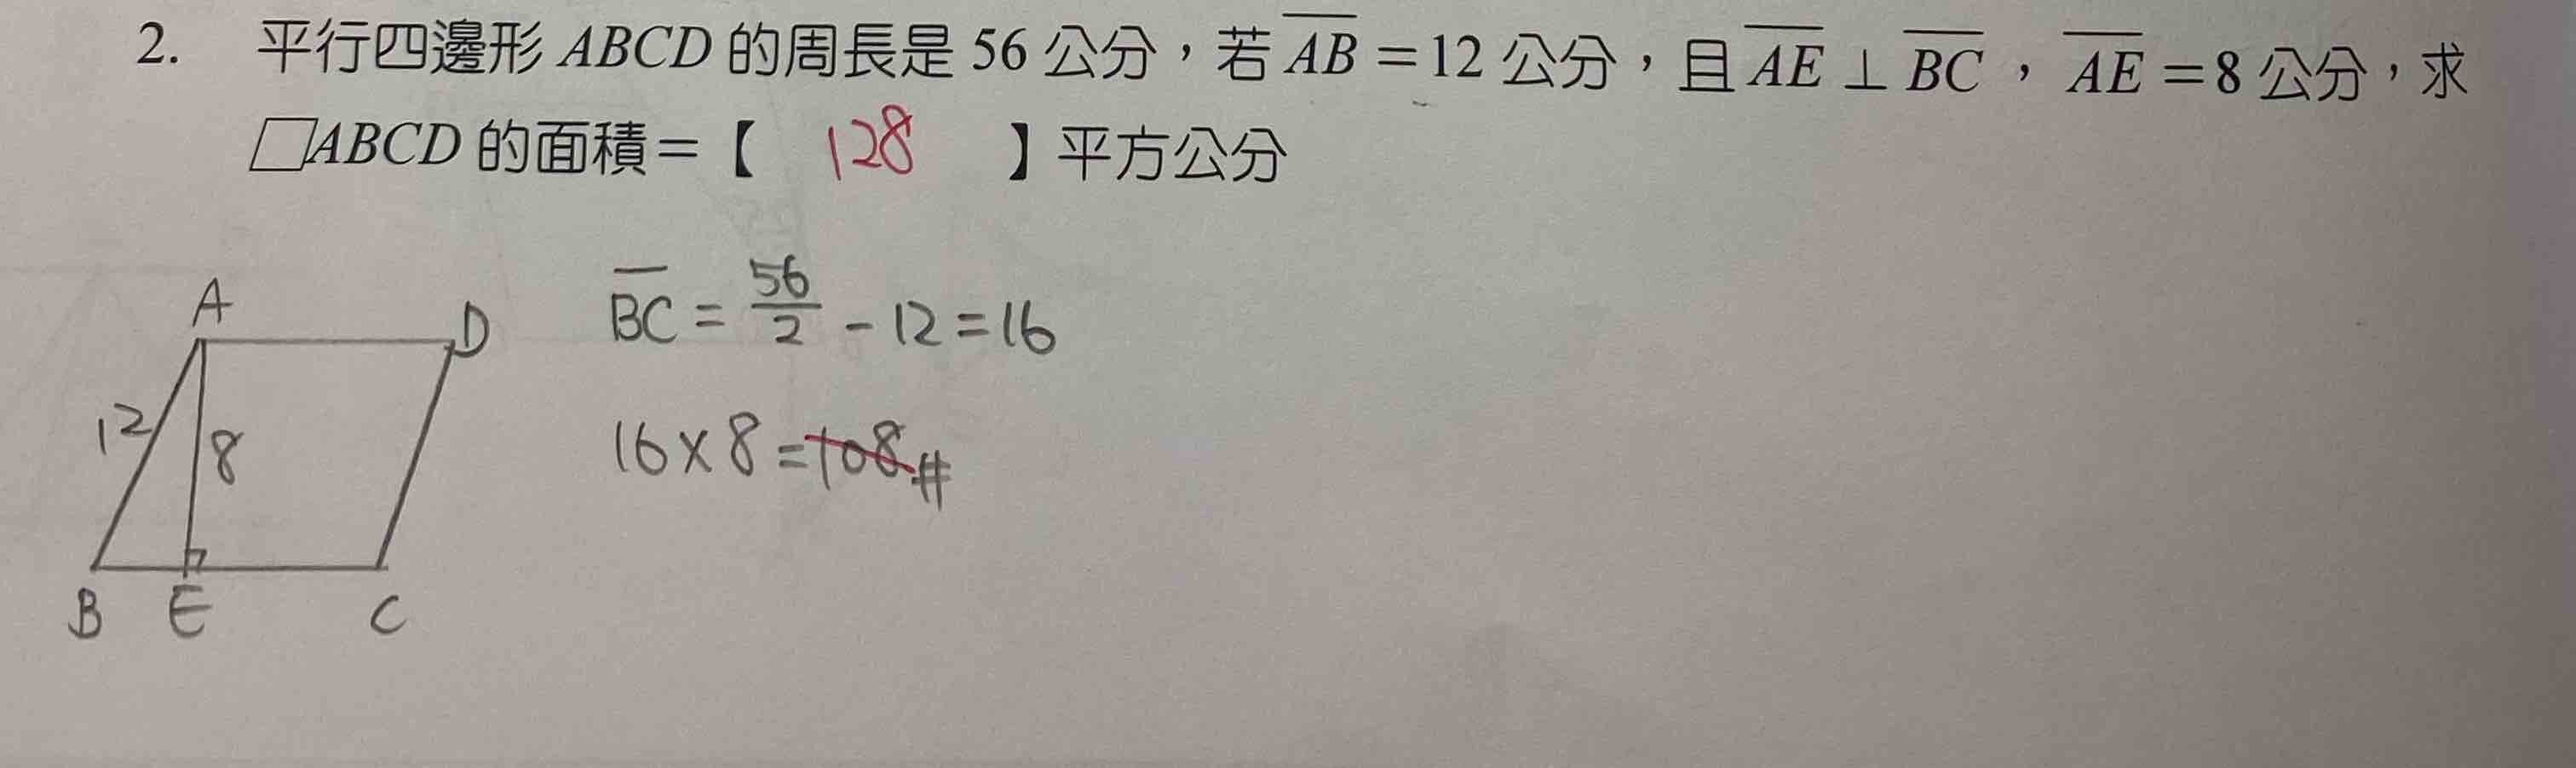 2. 平行四邊形 ABCD 的周長是 56 公分，若 \overline{AB} = 12 公分，且 \overline{AE} ⊥ \overline{BC}，\overline{AE} = 8 公分，求
▱ABCD 的面積 = 【 128 】平方公分
A
D
\overline{BC} = \frac{56}{2} - 12 = 16
12
8
16 × 8 = 108 #
B E C